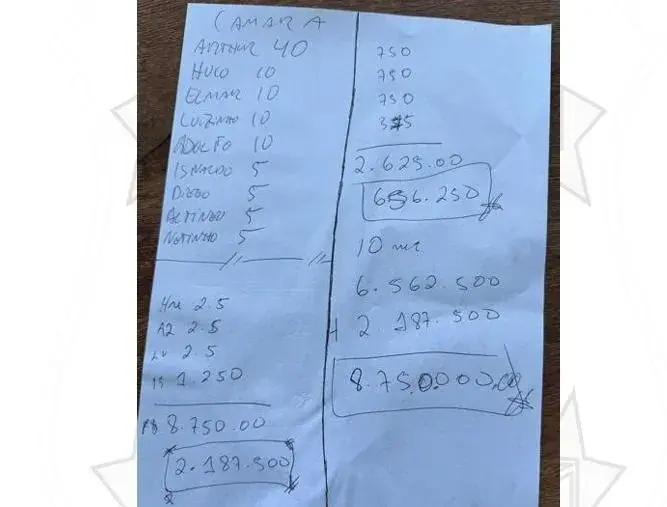 CAMARA
ARTHUR 40
HUGO 10
ELMAR 10
LUIZINHO 10
ADOLFO 10
ISNALDO 5
DIEGO 5
ALTINEU 5
NETINHO 5
2.5
A2 2.5
LU 2.5
IS 1.250
R$ 8.750.00
2.187.500
750
750
750
375
2.625.00
656.250
10 me
6.562.500
+ 2.187.500
8.750.000,00